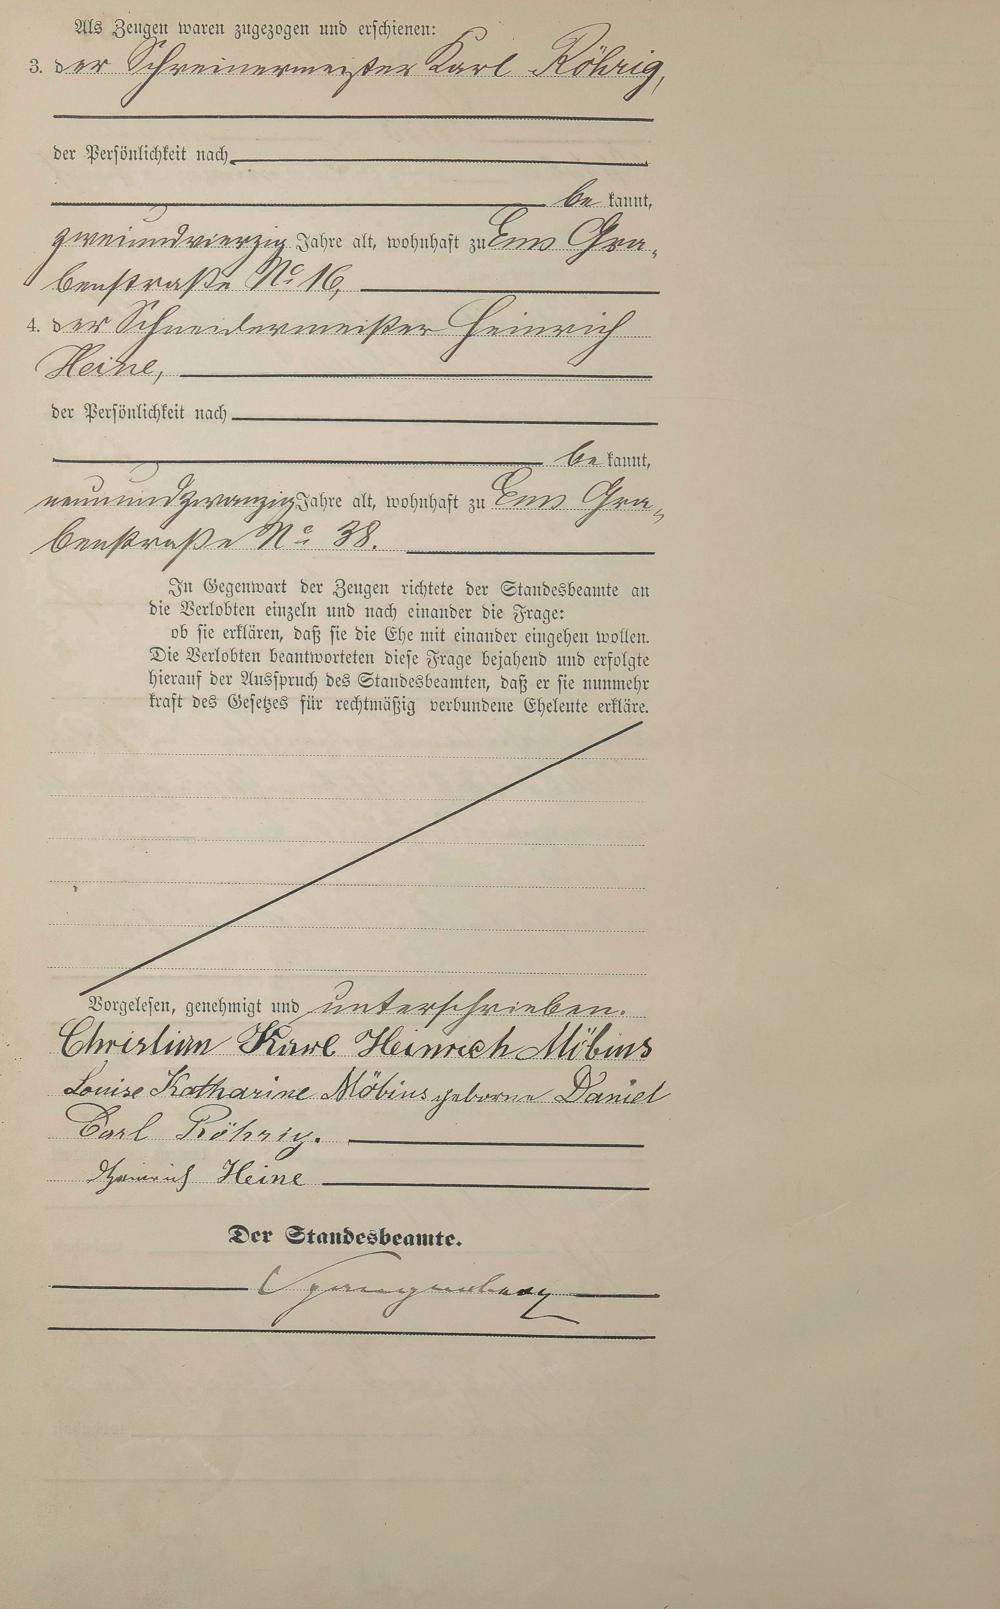 Als Zeugen waren zugezogen und erschienen:
3. der Schreinermeister Karl Röhrig,
der Persönlichkeit nach
be kannt,
zweiundvierzig Jahre alt, wohnhaft zu Ems Gra-
benstraße No 16,
4. der Schneidermeister Heinrich
Heine,
der Persönlichkeit nach
be kannt,
neunundzwanzig Jahre alt, wohnhaft zu Ems Gra-
benstraße No 38.
In Gegenwart der Zeugen richtete der Standesbeamte an
die Verlobten einzeln und nach einander die Frage:
ob sie erklären, daß sie die Ehe mit einander eingehen wollen.
Die Verlobten beantworteten diese Frage bejahend und erfolgte
hierauf der Ausspruch des Standesbeamten, daß er sie nunmehr
kraft des Gesetzes für rechtmäßig verbundene Eheleute erkläre.
Vorgelesen, genehmigt und unterschrieben.
Christian Karl Heinrich Möbius
Louise Katharine Möbius geborne Daniel
Carl Röhrig.
Heinrich Heine
Der Standesbeamte.
Spangenberg